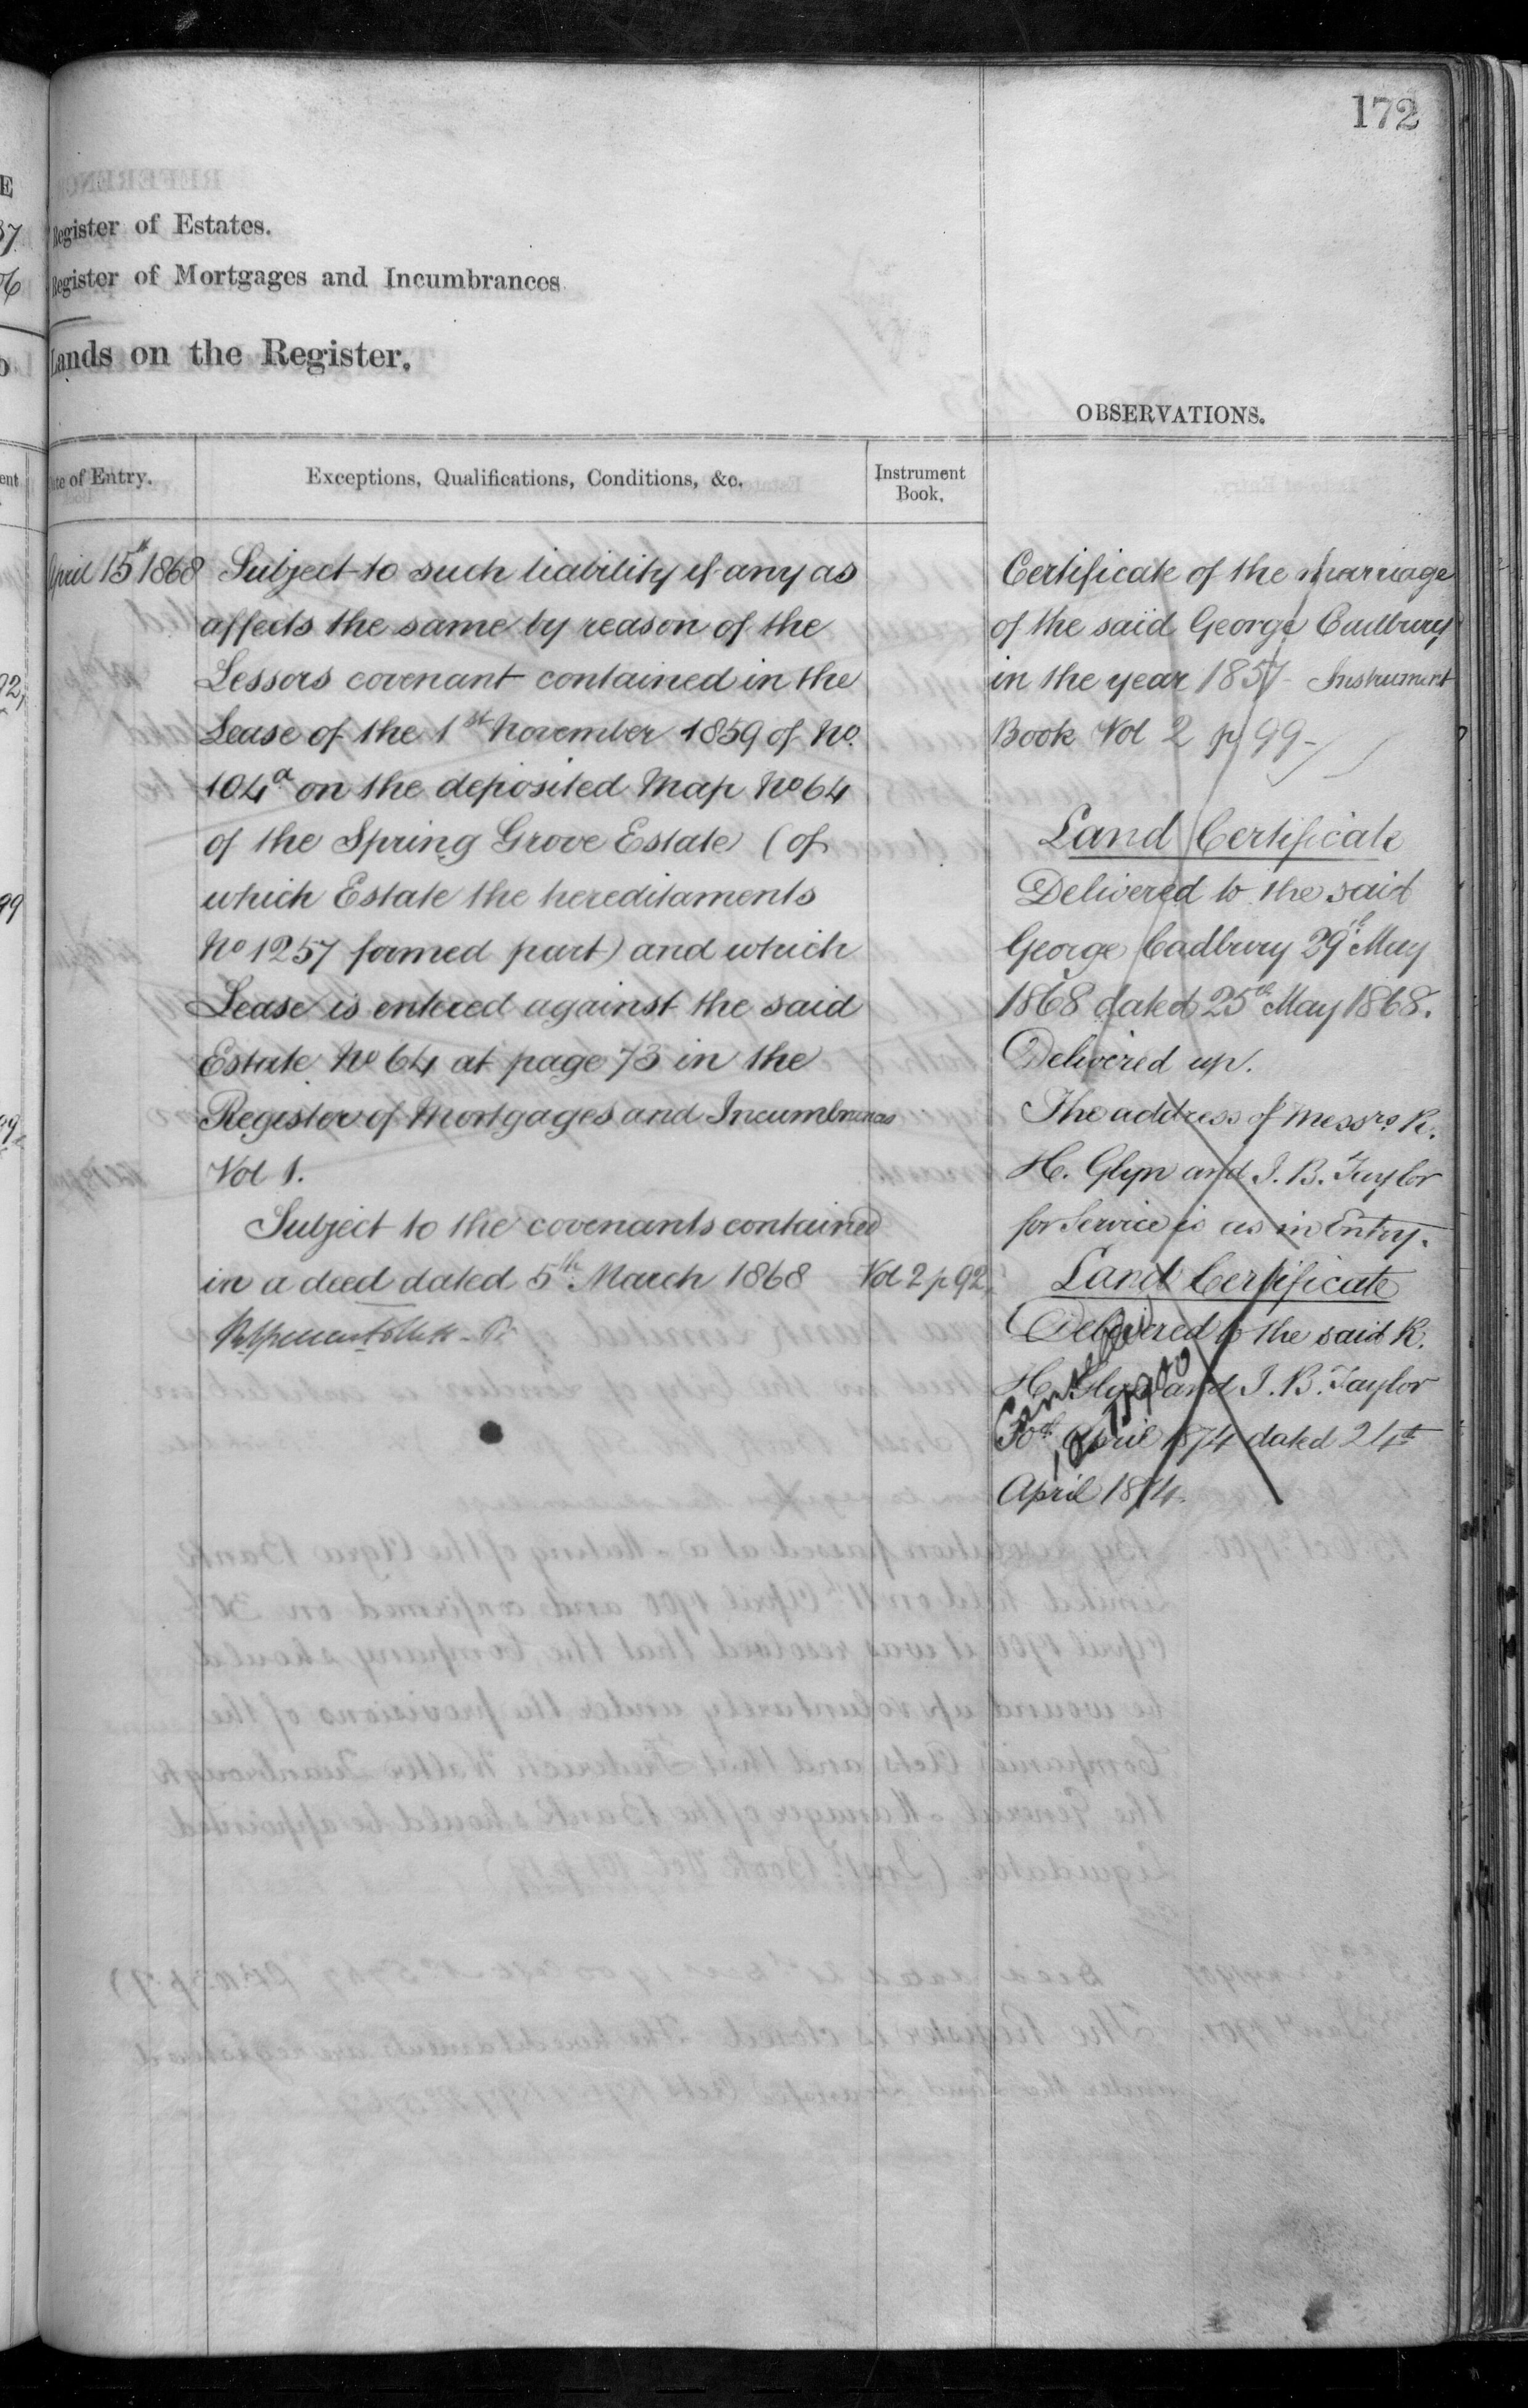 172
Register of Estates.
Register of Mortgages and Incumbrances
Lands on the Register.
OBSERVATIONS.
Date of Entry.
Exceptions, Qualifications, Conditions, &c.
Instrument
Book.
April 15th 1868
Subject to such liability if any as
affects the same by reason of the
Lessors covenant contained in the
Lease of the 1st November 1859 of No.
104a on the deposited Map No 64
of the Spring Grove Estate (of
which Estate the hereditaments
No 1257 formed part) and which
Lease is entered against the said
Estate No 64 at page 73 in the
Register of Mortgages and Incumbrances
Vol 1.
Subject to the covenants contained
in a deed dated 5th March 1868
Vol 2 p 92
Certificate of the marriage
of the said George Cadbury
in the year 1857 Instrument
Book Vol 2 p 99-
Land Certificate
Delivered to the said
George Cadbury 29th May
1868 dated 25th May 1868.
Delivered up.
The address of Messrs. R.
H. Glyn and J. B. Taylor
for Service is as in Entry.
Land Certificate
Delivered to the said R.
H. Glyn and J. B. Taylor
30th April 1874 dated 24th
April 1874.
Cancelled